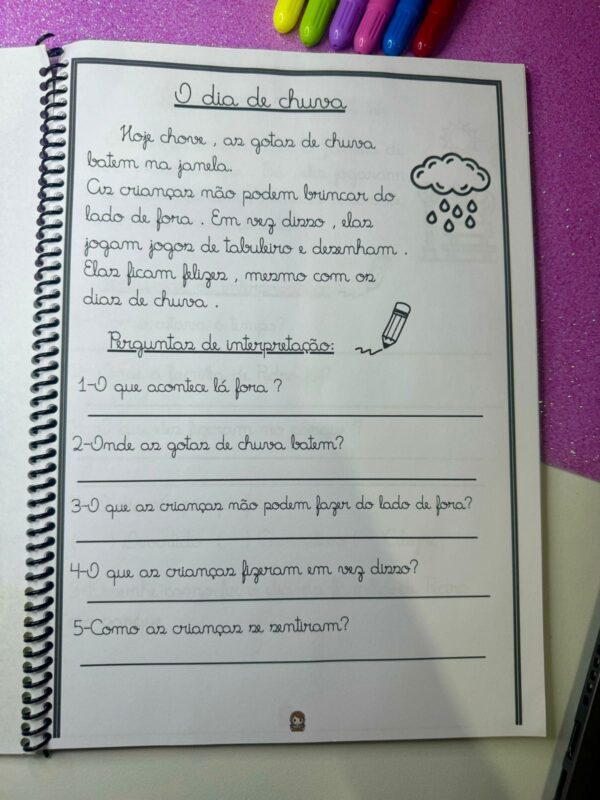 O dia de chuva
Hoje chove , as gotas de chuva
batem na janela.
As crianças não podem brincar do
lado de fora . Em vez disso , elas
jogam jogos de tabuleiro e desenham .
Elas ficam felizes , mesmo com os
dias de chuva .
Perguntas de interpretação:
1-O que acontece lá fora ?
2-Onde as gotas de chuva batem?
3-O que as crianças não podem fazer do lado de fora?
4-O que as crianças fizeram em vez disso?
5-Como as crianças se sentiram?